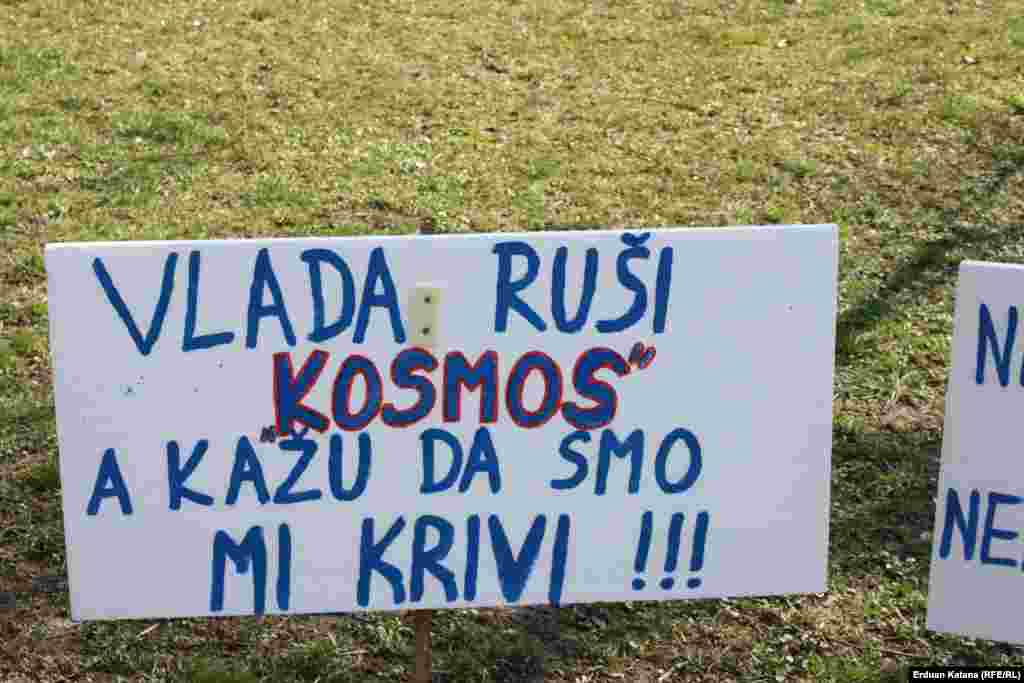 VLADA RUŠI
"KOSMOS"
A KAŽU DA SMO
MI KRIVI !!!
Erduan Katana (RFE/RL)